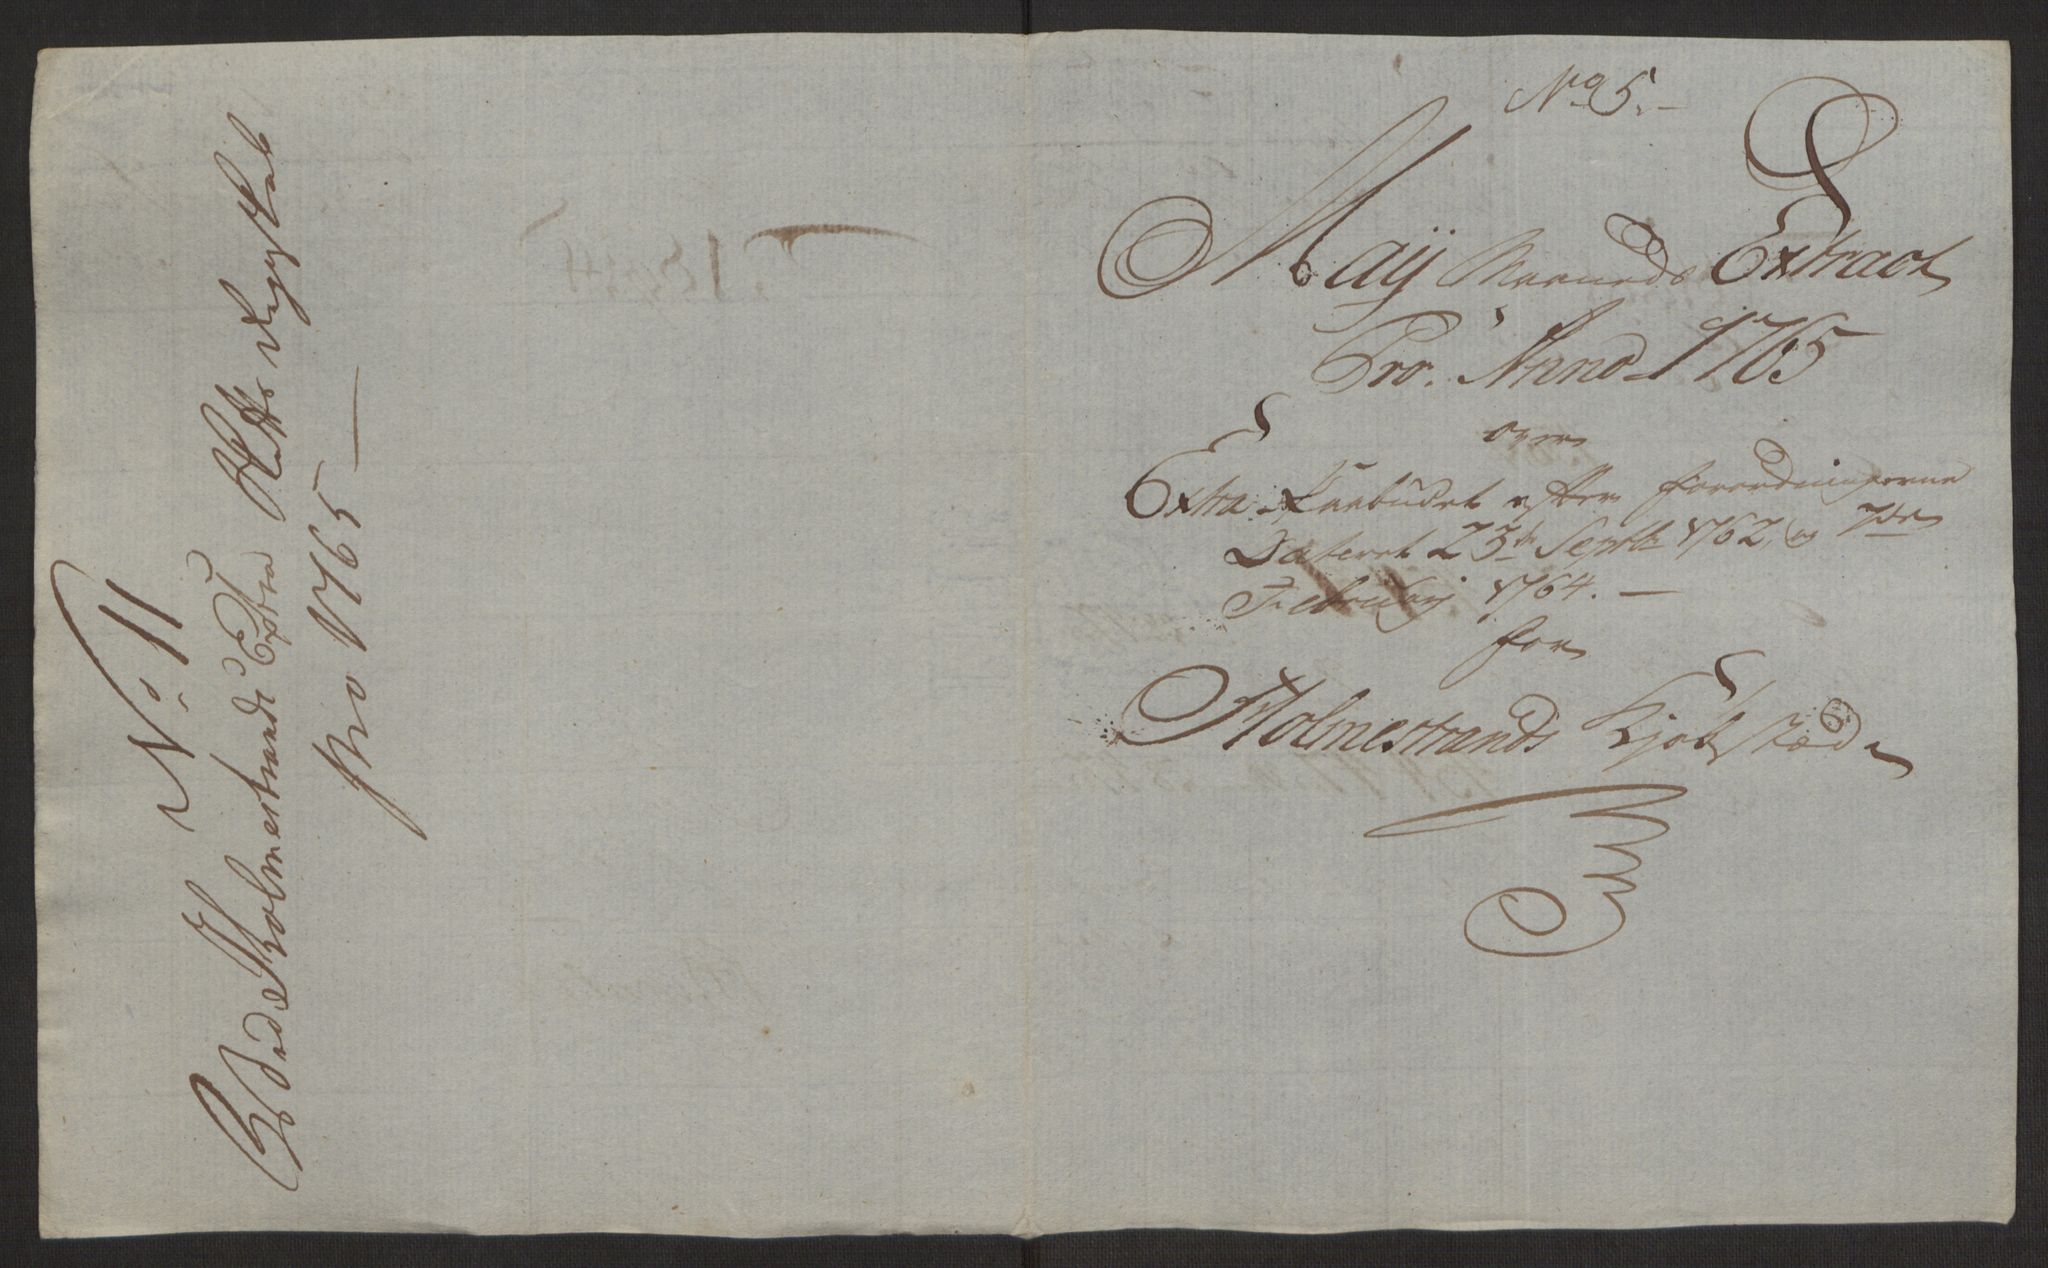 No 11
Ved Holmestrands Extra Skatts Regnskab
pro 1765
No 5.
Maij Maaneds Extract
Pro. Anno 1765
over
Extra Paabudet efter Forordningerne
Dateret 23de Septbr 1762, og 7de
Februarij 1764.
for
Holmestrands Kjøbstæd